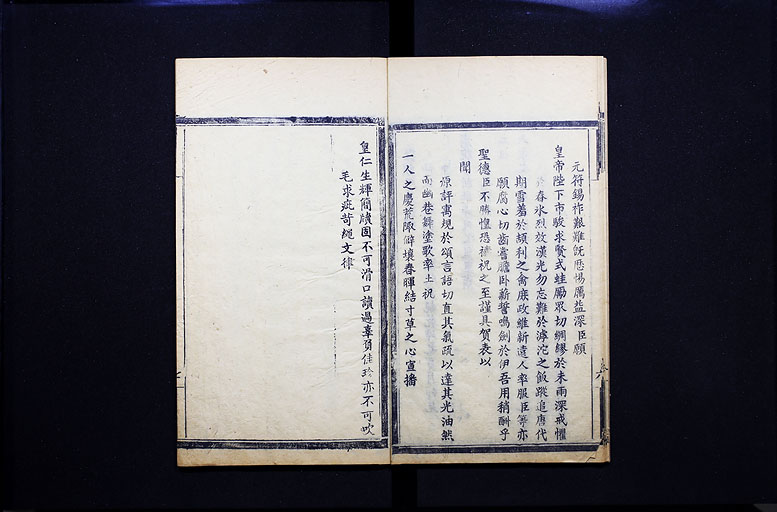 元符錫祚艱難既歷惕厲益深臣願
皇帝陛下市駿求賢式蛙勵眾切綢繆於未雨深戒懼
於春氷烈效漢光勿忘難於滹沱之飯蹤追唐代
期雪羞於頡利之禽庶政維新遠人率服臣等亦
願腐心切齒嘗膽卧薪誓鳴劍於伊吾用稍酬乎
聖德臣不勝惶恐禱祝之至謹具賀表以
聞
源評寓規於頌言語切直其氣疏以達其光油然
而幽巷舞塗歌率土祝
一人之慶荒陬僻壤春暉結寸草之心宣播
皇仁生輝簡牘固不可滑口讀過辜負佳珍亦不可吹
毛求疵苛繩文律